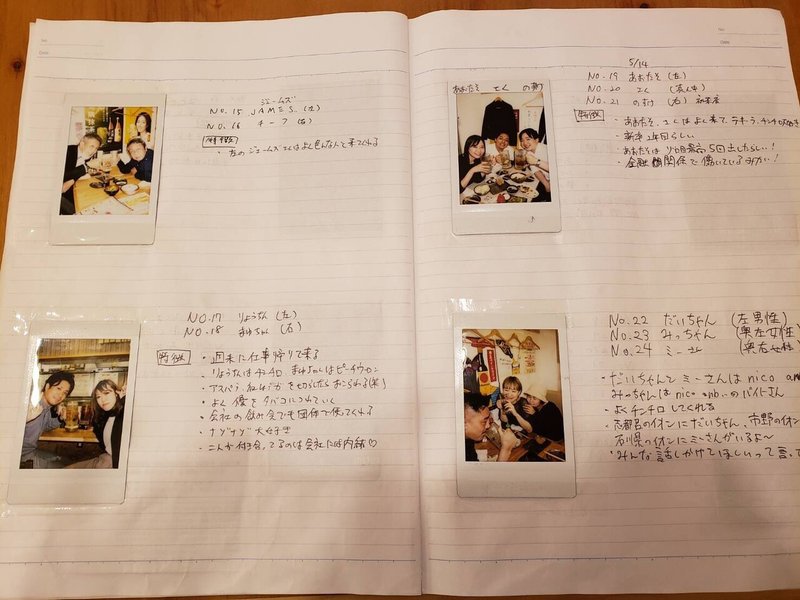 ジェームズ
No.15 JAMES.(左)
No.16 チーフ(右)
特徴
・左のジェームズさんはよく色んな人と来てくれる
No.17 りょうちん(左)
No.18 まゆちゃん(右)
特徴
・週末に仕事帰りで来る
・りょうちんはチンチロ まゆちゃんはピーチウーロン
・アスパラ、を切らしたらおこられる(笑)
・よく僕をタバコにつれていく
・会社の飲み会でも団体で使ってくれる
・ナゾナゾ大好き
・二人が付き合ってるのは会社には内緒♡
No.
Date
5/14
No.19 あおたそ(左)
No.20 さく(真ん中)
No.21 のすけ(右)
特徴
・あおたそ、さくはよく来て、テキーラ、チンチロ大好き
・新卒2年目らしい
・あおたそはゾロ目最高5回出したらしい!
・金融機関係で働いているみたい!
あおたそ さく のすけ
No.22 だいちゃん (左男性)
No.23 みっちゃん (奥左女性)
No.24 ミーさん (奥右女性)
・だいちゃんとミーさんはnico
みっちゃんはnico のバイトさん
・よくチンチロしてくれる
・志都呂のイオンにだいちゃん、市野のイオン
石川県のイオンにミーさんがいるよ〜
・みんな話しかけてほしいって言って